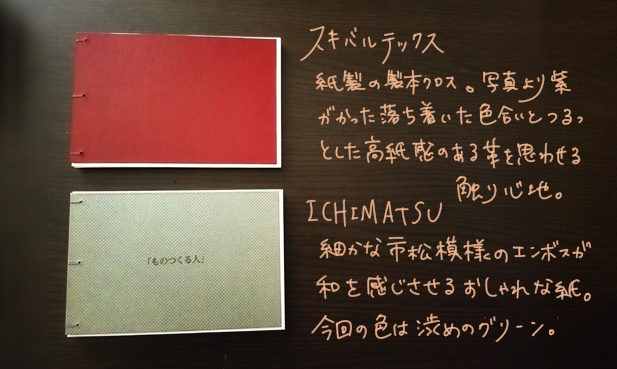 スキバルテックス
紙製の製本クロス。写真より紫
がかった落ち着いた色合いとつるっ
とした高紙感のある革を思わせる
触り心地。
ICHIMATSU
細かな市松模様のエンボスが
和を感じさせるおしゃれな紙。
今回の色は渋めのグリーン。
「ものつくる人」